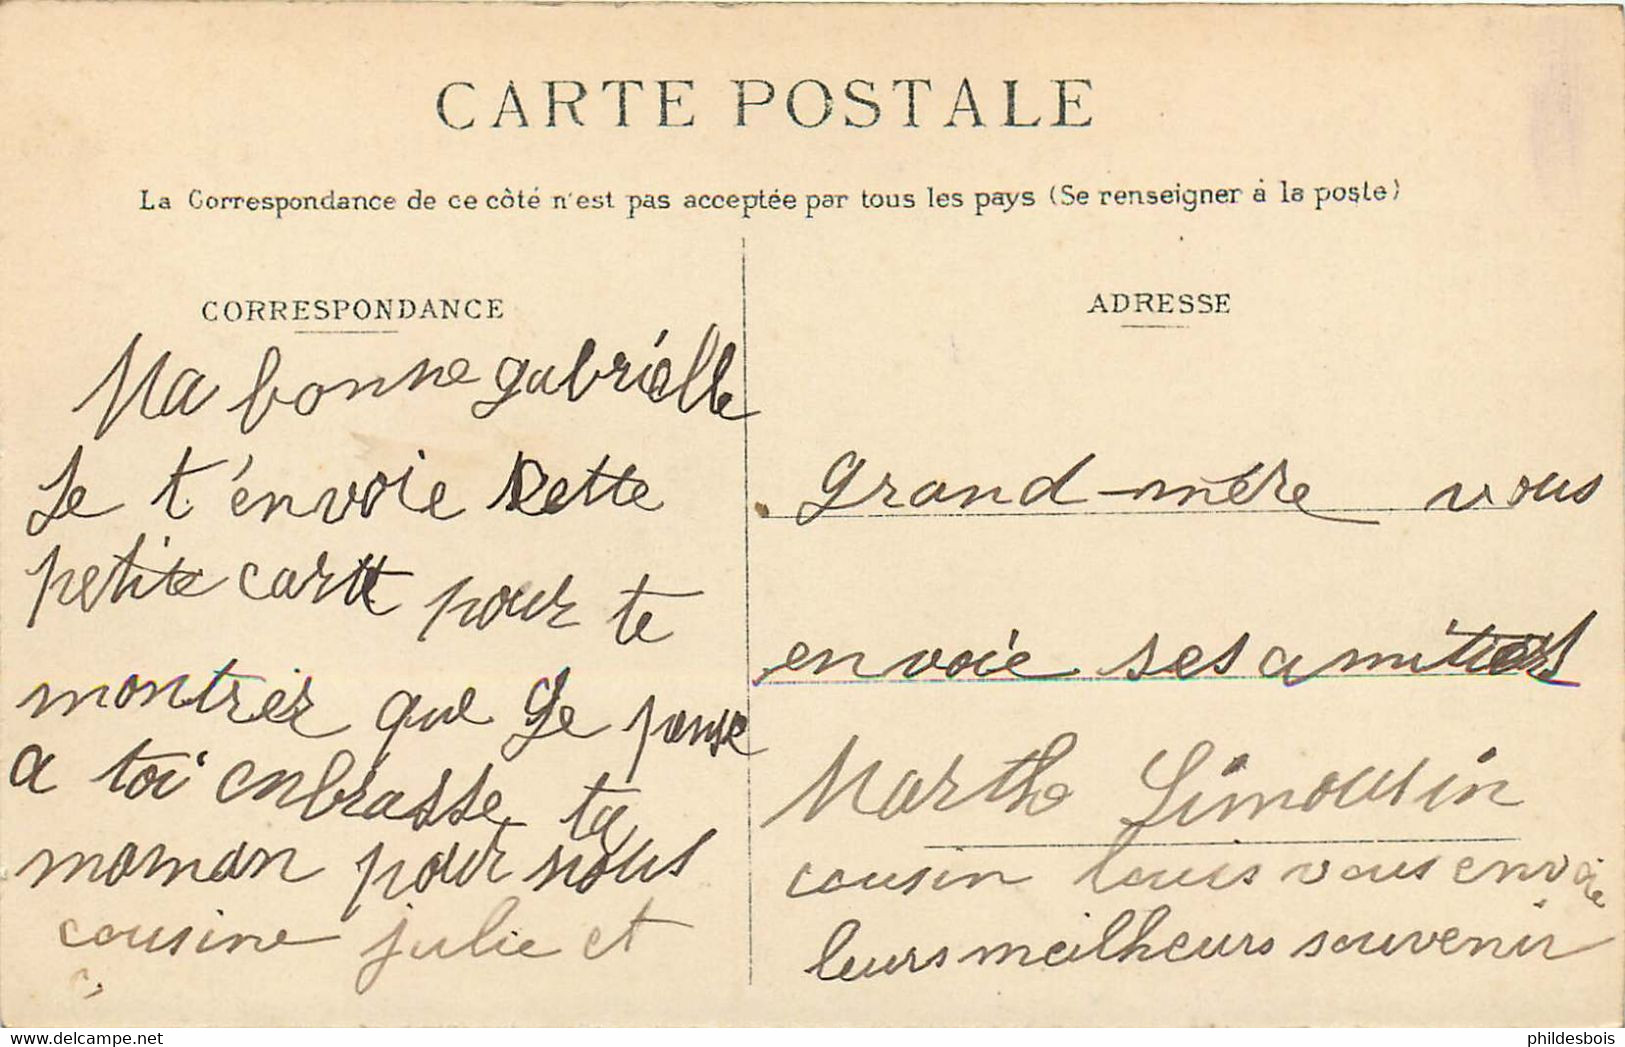 CARTE POSTALE
La Correspondance de ce côté n'est pas acceptée par tous les pays (Se renseigner à la poste)
CORRESPONDANCE
Ma bonne gabriélle
Je t'énvoie cette
petite carte pour te
montrer que Je panse
a toi enbrasse ta
moman pour nous
cousine julie et
ADRESSE
grand-mére vous
envoie ses amitiers
Marthe Limousin
cousin louis vous envoie
leurs meilheurs souvenir
www.delcampe.net
phildesbois